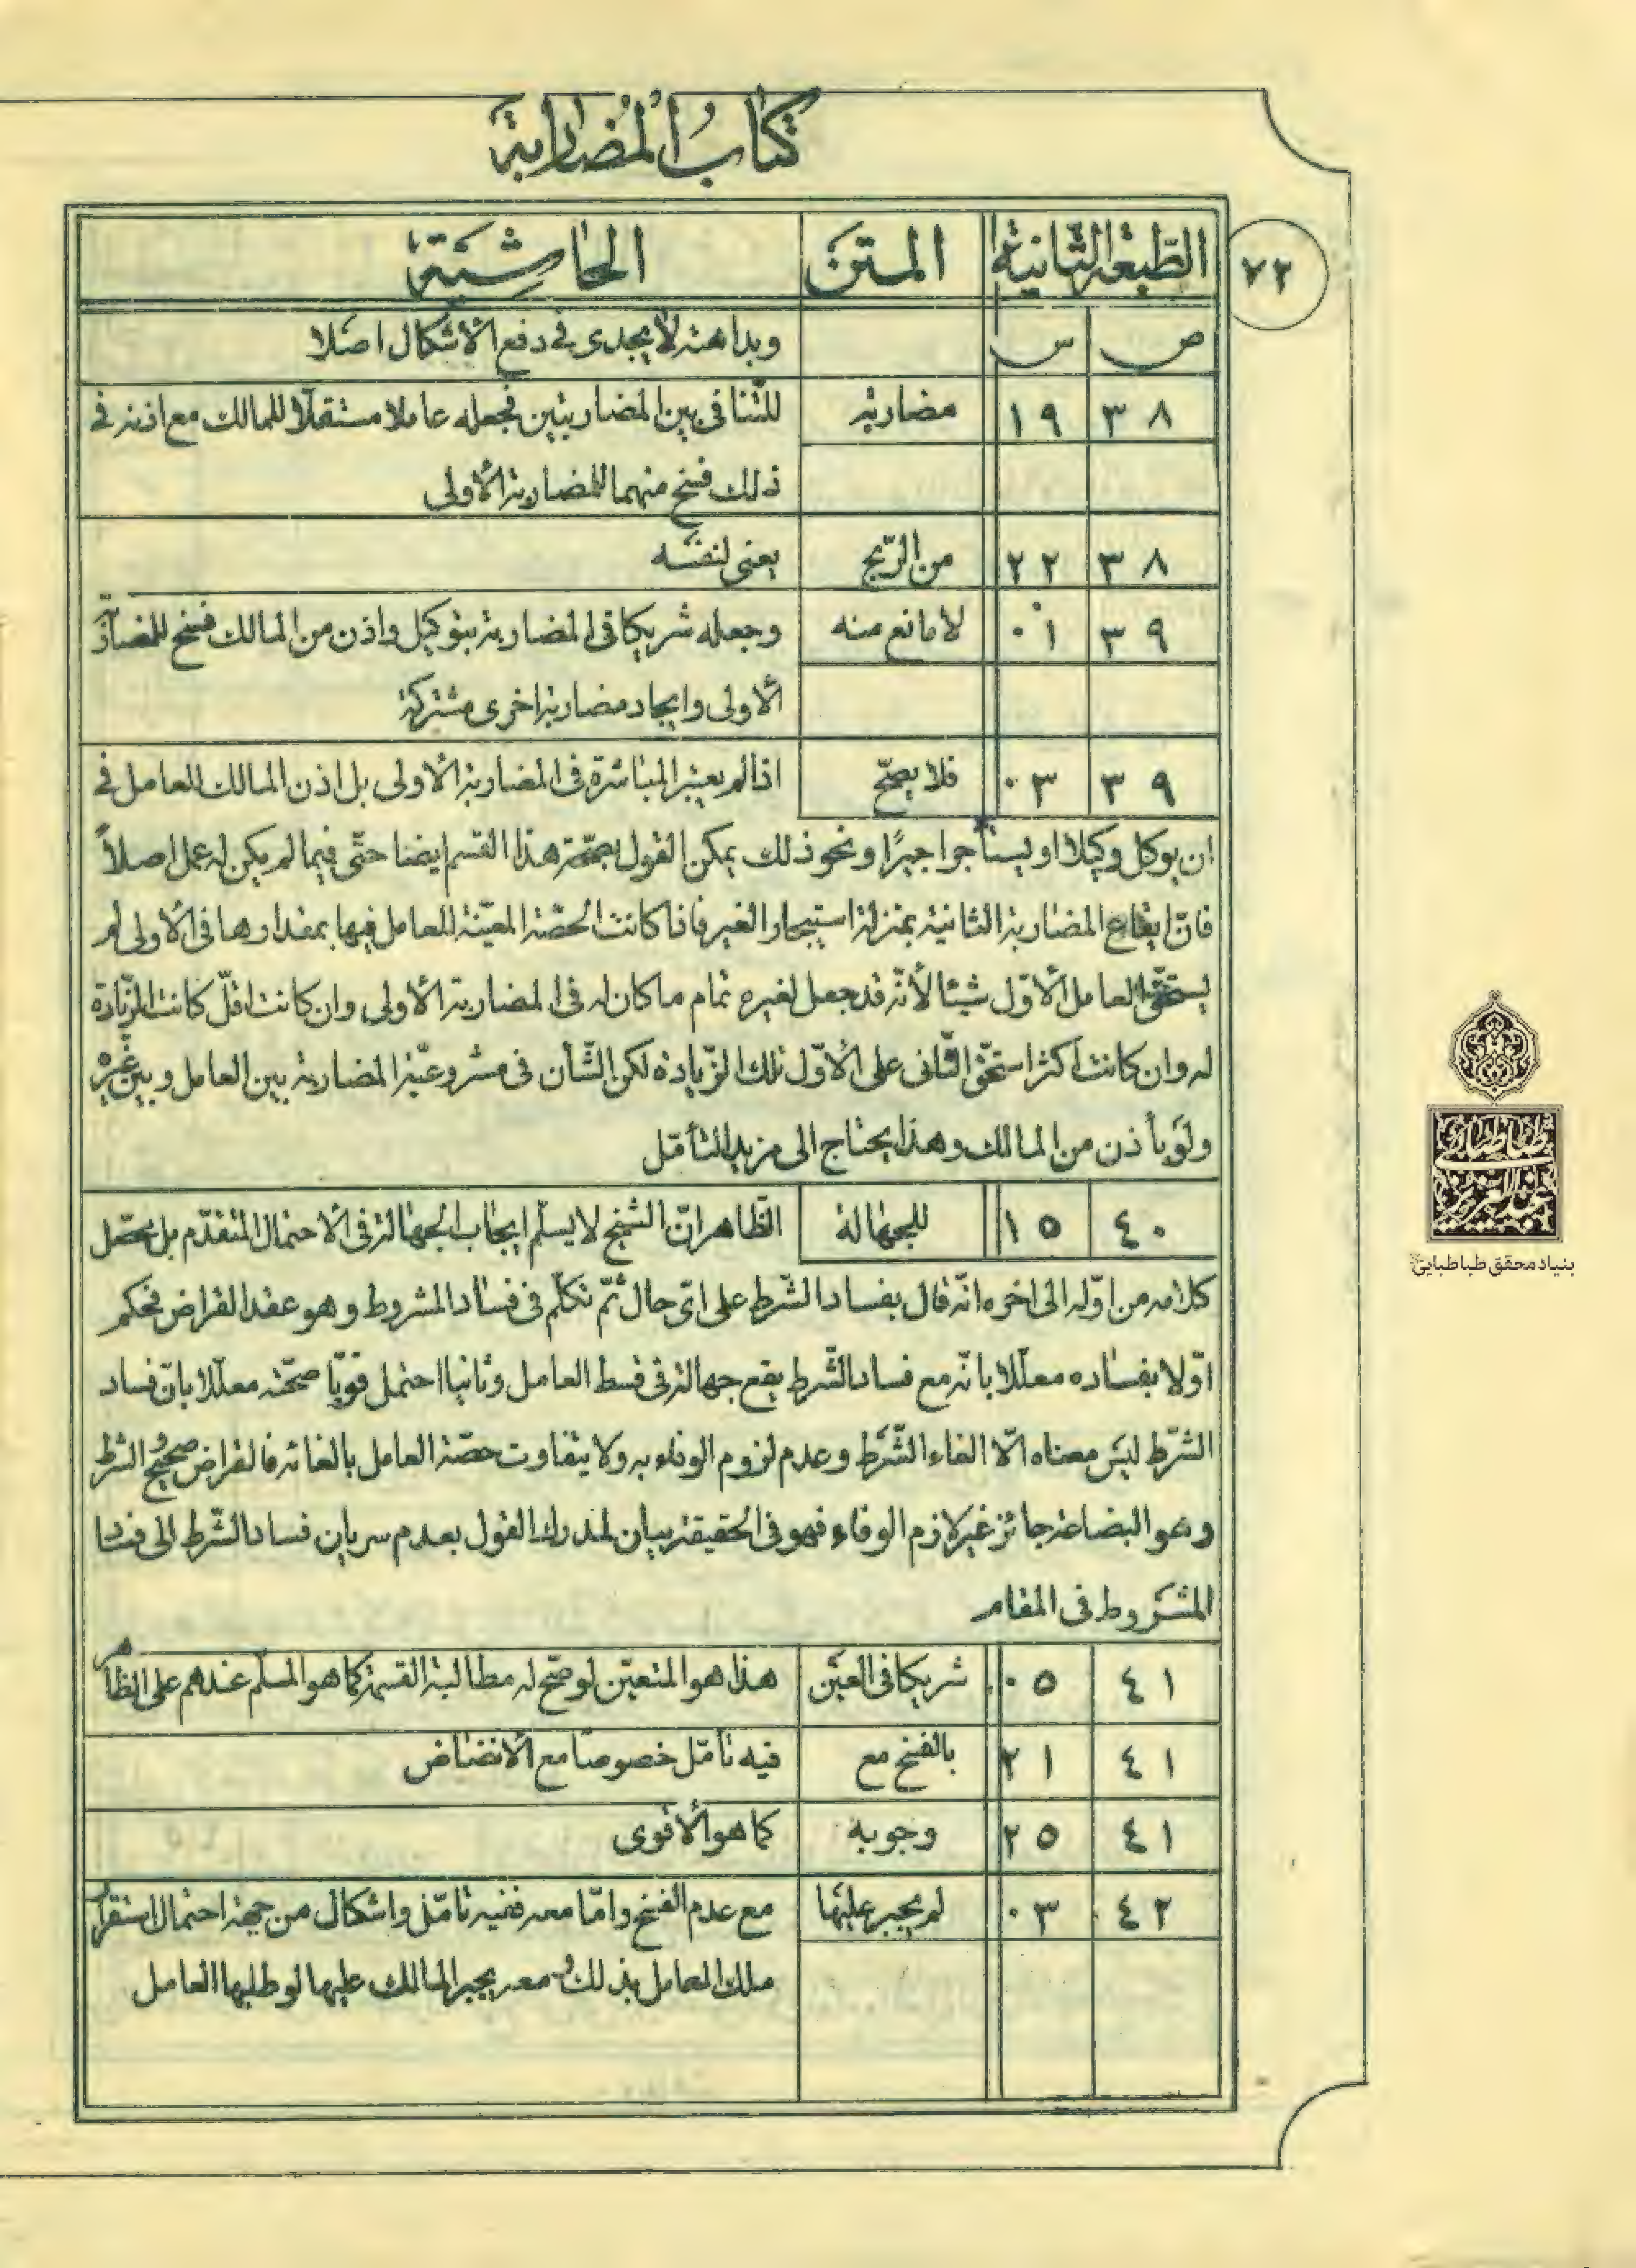 كتاب المضاربة
الطبعة الثانية المتن الحاشية
٧٢
ص س وبداهته لا يجدى في دفع الاشكال اصلا
٣٨ ١٩ مضاربة للتنافى بين المضاربتين فجعله عاملا مستقلّا للمالك مع اذنه في
ذلك فسخ منهما للمضاربة الأولى
٣٨ ٢٢ من الرّبح يعنى لنفسه
٣٩ ٠١ لا مانع منه وجعله شريكا في المضاربة بتوكيل واذن من المالك فسخ للمضاربة
الاولى وايجاد مضاربة اخرى مشتركة
٣٩ ٠٣ فلا يصحّ اذا لم يعتبر المباشرة في المضاربة الاولى بل اذن المالك للعامل في
ان يوكل وكيلا او يستأجر اجيرًا ونحو ذلك يمكن القول بصحّة هذا القسم ايضا حتّى فيما لم يكن له عمل اصلاً
فانّ ايقاع المضاربة الثانية بمنزلة استيجار الغير فاذا كانت الحصّة المعيّنة للعامل فيها بمقدارها في الاولى لم
يستحقّ العامل الأوّل شيئا لأنّه قد جعل لغيره تمام ما كان له في المضاربة الأولى وان كانت اقلّ كانت الزّيادة
له وان كانت اكثر استحقّ الثّانى على الأوّل تلك الزّيادة لكن الشّأن في مشروعيّة المضاربة بين العامل وبين غيره
ولو بأذن من المالك وهذا يحتاج الى مزيد التأمّل
٤٠ ١٥ للجهالة الظّاهر انّ الشيخ لا يسلّم ايجاب الجهالة في الاحتمال المتقدّم بل محصّل
كلامه من اوّله الى اخره انّه قال بفساد الشّرط على اىّ حال ثمّ تكلّم في فساد المشروط وهو عقد القراض فحكم
اوّلا بفساده معلّلا بانّه مع فساد الشّرط يقع جهالة في قسط العامل وثانيا احتمل قويّا صحّته معلّلا بانّ فساد
الشّرط ليس معناه الّا الغاء الشّرط وعدم لزوم الوفاء به ولا يتفاوت حصّة العامل بالغائه فالقراض صحيح و الشرط
وهو البضاعة جائز غير لازم الوفاء فهو في الحقيقة بيان لمدرك القول بعدم سريان فساد الشّرط الى فساد
المشروط في المقام
٤١ ٠٥ شريكا في العين هذا هو المتعيّن لو صحّ له مطالبة القسمة كما هو المسلّم عندهم على الظّاهر
٤١ ٢١ بالفسخ مع فيه تأمّل خصوصا مع الانضاض
٤١ ٢٥ وجوبه كما هو الأقوى
٤٢ ٠٣ لم يجبر عليها مع عدم الفسخ وامّا معه ففيه تأمّل واشكال من جهة احتمال استقرار
ملك العامل بذلك و معه يجبر المالك عليها لو طلبها العامل
طباطبائی
عبدالعزیز
بنیاد محقق طباطبایی